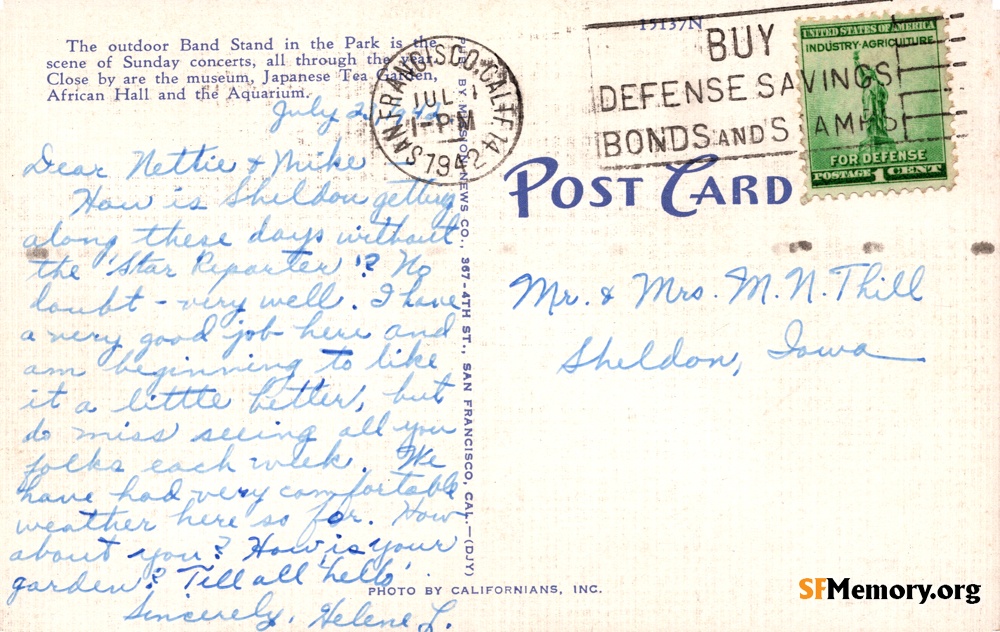 The outdoor Band Stand in the Park is the
scene of Sunday concerts, all through the year.
Close by are the museum, Japanese Tea Garden,
African Hall and the Aquarium.
July 2, 1942
Dear Nettie & Mike —
How is Sheldon getting
along these days without
the "Star Reporter"? No
doubt - very well. I have
a very good job here and
am beginning to like
it a little better, but
do miss seeing all you
folks each week. We
have had very comfortable
weather here so far. How
about you? How is your
garden? Till all "hello".
Sincerely, Helene L.
BY MISSION NEWS CO., 367-4TH ST., SAN FRANCISCO, CAL.—(DJY)
PHOTO BY CALIFORNIANS, INC.
SAN FRANCISCO, CALIF. 14
JUL 1
1-PM
1942
15137N
BUY
DEFENSE SAVINGS
BONDS AND STAMPS
UNITED STATES OF AMERICA
INDUSTRY-AGRICULTURE
FOR DEFENSE
POSTAGE 1 CENT
POST CARD
Mr. & Mrs. M. N. Thill
Sheldon, Iowa
SFMemory.org